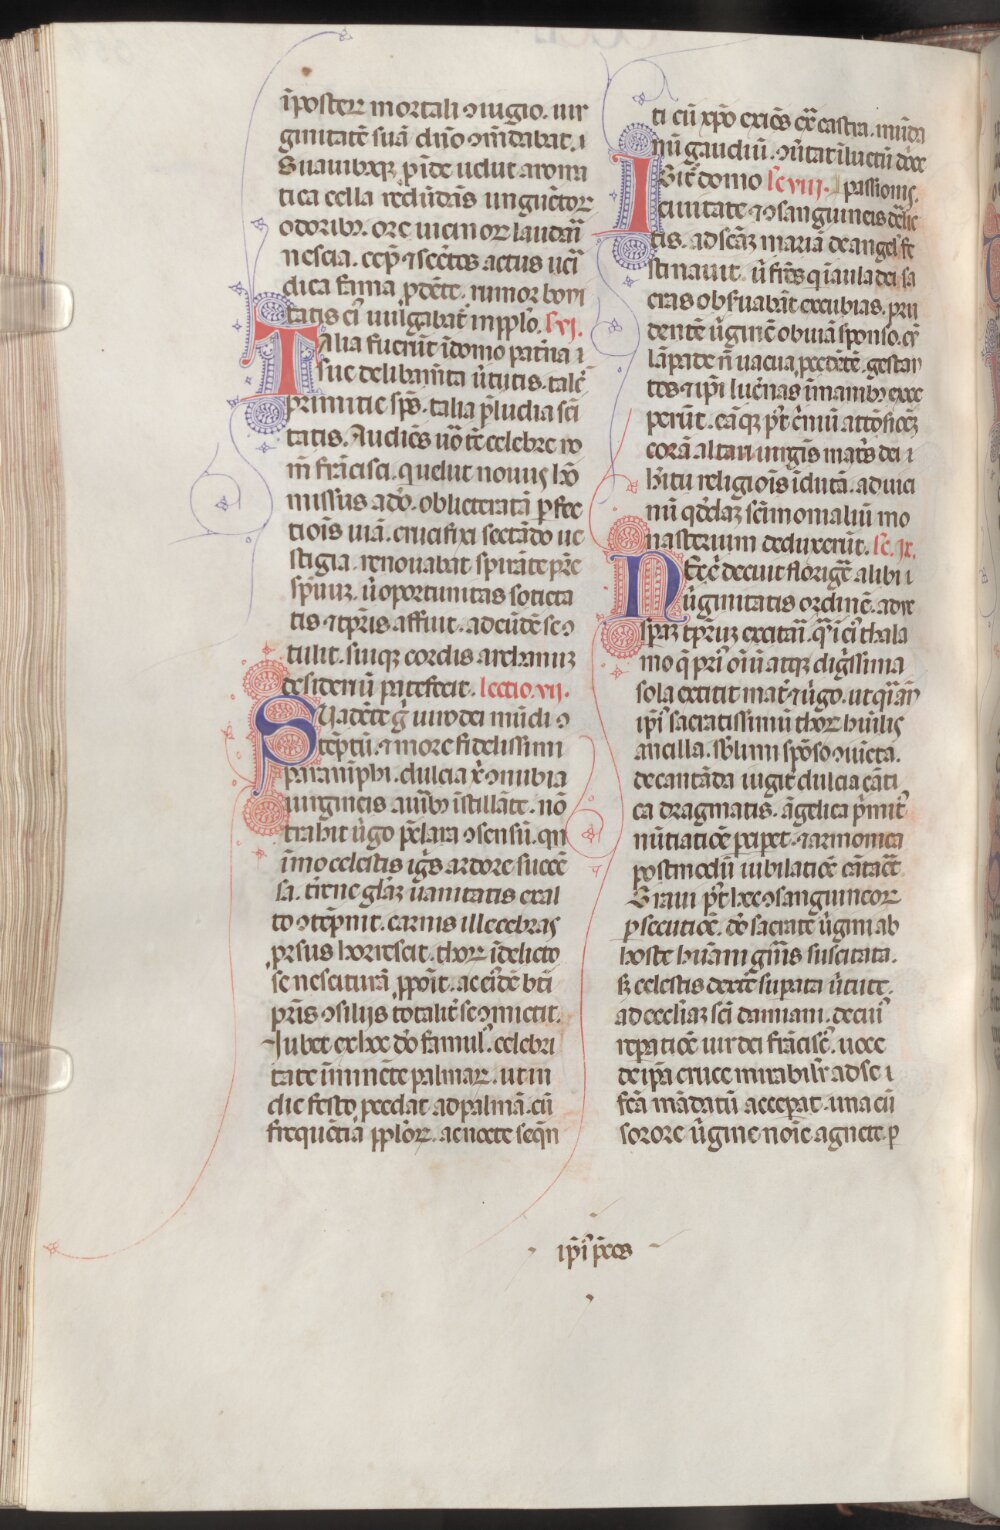 īposteꝝ mortali ɔiugio. uir
ginitatē suā dn̄o ɔmēdabat. ⁊
Suauibꝰqꝫ p̱īde uelut aroma
tica cella redūdās unguētoꝝ
odoribꝰ. ore uicinoꝝ laudāı
nescia. cep̄ ⁊ sc̄ētes actus ueı
dica fama p̱dēte. rumor boni
tatis eı uulgabat̄ in pp̄lo. l.vi.
Talia fuerūt ī domo pat̄na ⁊
sue delibam̄ta ūtutis. talē
primitie sp̄s. talia p̄ludia sc̄ı
tatis. Audiēs uo tē celebre no
m̄ frācisci. q̄ uelut nouus hō
missus a dō. oblitteratā p̱fec
tiōis uiā. crucifixi sectādo ue
stigia. renouabat spirāte pr̄e
sp̄uuꝫ. ū oportunitas societa
tis ⁊ tp̄ris affuit. ad eūdē se ɔ
tulit. suiqꝫ cordis archanuꝫ
desideriū patefecit. lectio .vii.
Suadēte g̊ uiro dei mūdi ɔ
tēptū. ⁊ more fidelissimi
paranīphi. dulcia x̄ ɔnubia
uirgineis auribꝰ īstillāte. nō
trahit̄ ūgo p̄clara ɔsensū. qn
īmo celestis ig̊s ardore succē
sa. t̄rene gl̄aꝫ uanitatis exal
to ɔtēpnit. carnis illecebras
p̱rsus horrescit. thoꝝ ī delicto
se nescituꝛā ꝓpōit. ac eıdē bt̄ı
pr̄is ɔsilijs totalit̄ se ɔmictit.
Iubet ex hoc dō famulꝰ. celebri
tate īminēte palmaꝝ. ut in
die festo p̱cedat ad palmā. cū
frequētia pp̄loꝝ. ac nocte seq̄n
ti cū xp̄o exiēs ex̄ castra. mūda
nū gaudiū. ɔūtat ī luctū dn̄ce
Igit̄ domo le.viii. passionis.
ciuitate ⁊ ɔsanguineis delic
tis. ad sc̄āꝫ mariā de angelꝰ fe
stinauit. ū frēs q ī aula dei sa
cras obseruabāt excubias. pru
dentē ūginē obuiā sponso. cū
lāpade n̄ uacua p̱cedētē. gestan
tes ⁊ ip̄i lucernas ī manibꝰ exce
perūt. eāqꝫ p̄t c̄niū attōsioēꝫ
corā altari uirgīs mat̄s dei ⁊
hītu religiōis īdutā. ad uici
nū qd̄daꝫ sc̄imonialiū mo
nasterium deduxerūt. le.ix.
Nec em̄ decuit florigē alibi ⁊
ūginitatis ordinē. ad ue
sp̄aꝫ tp̄ruꝫ excitaı̄. qm̄ ī eı thala
mo q̄ prı oīū atqꝫ dig̊issima
sola extitit mat̄ ⁊ ūgo. ut q̄si āp̄
ip̄i sacratissimū thoꝝ hūilis
ancilla. sb̄limi spōso ɔuicta.
decantāda iugit̄ dulcia cāti
ca dragmatis. āgelica p̄mit̄
nūtiatiōe p̱ciperet. ⁊ armonica
postmodū iubilatiōe cātaēt
Graui p̄t hec ɔsanguineoꝝ
p̱secutiōē. dō sacrate ūgini ab
hoste hūani gn̄is suscitata.
sꝫ celestis dext̄e suꝑata ūtute.
ad eccliaꝫ sc̄i damiani. de cuiꝰ
reꝑatiōe uir dei frāciscꝰ. uoce
de ip̄a cruce mirabilit̄ ad se ⁊
fcā mādatū acceꝑat. una cū
sorore ūgine noīe agnete. ꝑ
ip̄iꝰ p̄ces